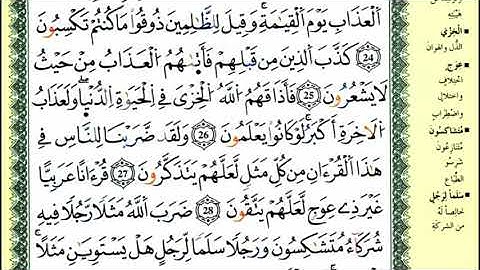 ٱلْعَذَابِ يَوْمَ ٱلْقِيَٰمَةِ ۚ وَقِيلَ لِلظَّٰلِمِينَ ذُوقُوا۟ مَا كُنتُمْ تَكْسِبُونَ
٢٤ كَذَّبَ ٱلَّذِينَ مِن قَبْلِهِمْ فَأَتَىٰهُمُ ٱلْعَذَابُ مِنْ حَيْثُ
لَا يَشْعُرُونَ ٢٥ فَأَذَاقَهُمُ ٱللَّهُ ٱلْخِزْىَ فِى ٱلْحَيَوٰةِ ٱلدُّنْيَا ۖ وَلَعَذَابُ
ٱلْءَاخِرَةِ أَكْبَرُ ۚ لَوْ كَانُوا۟ يَعْلَمُونَ ٢٦ وَلَقَدْ ضَرَبْنَا لِلنَّاسِ فِى
هَٰذَا ٱلْقُرْءَانِ مِن كُلِّ مَثَلٍ لَّعَلَّهُمْ يَتَذَكَّرُونَ ٢٧ قُرْءَانًا عَرَبِيًّا
غَيْرَ ذِى عِوَجٍ لَّعَلَّهُمْ يَتَّقُونَ ٢٨ ضَرَبَ ٱللَّهُ مَثَلًا رَّجُلًا فِيهِ
شُرَكَآءُ مُتَشَٰكِسُونَ وَرَجُلًا سَلَمًا لِّرَجُلٍ هَلْ يَسْتَوِيَانِ مَثَلًا ۚ
هيئته
الخزي
الذل والهوان
عوج
اختلاف
واختلال
واضطراب
متشاكسون
متنازعون
شرسو
الطباع
سلما لرجل
خالصا له
من الشركة